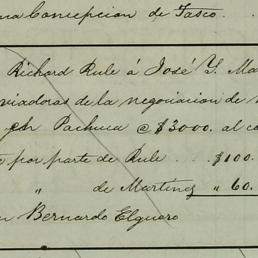 na Concepcion de Tasco.
Richard Rule á José Y. Ma
viadoras de la negociacion de
en Pachuca @ $3000. al co
por parte de Rule . . . $100.
" de Martinez " 60.
Bernardo Elguero